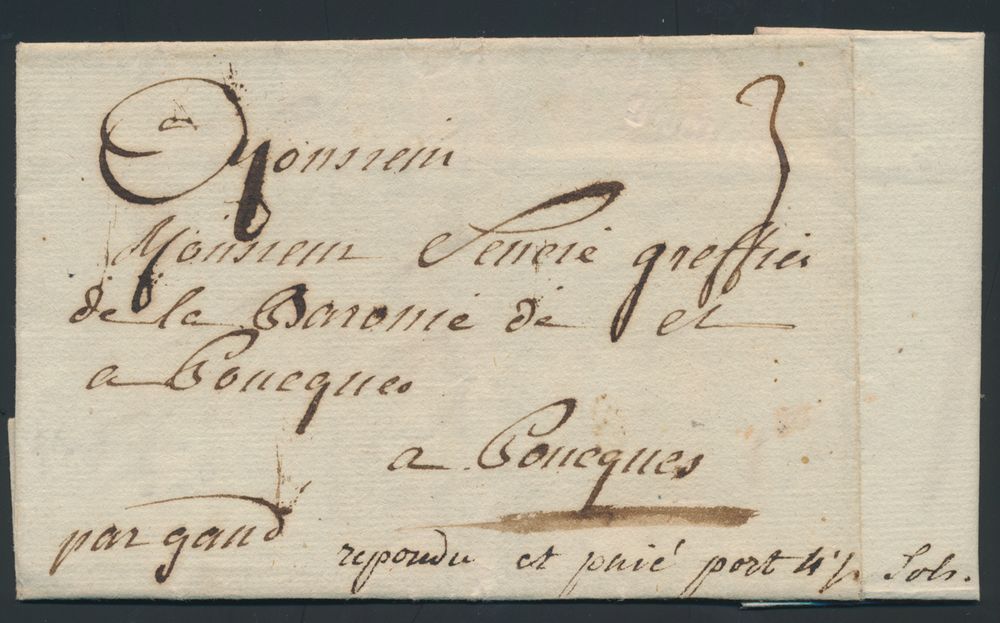 a Monsieur
3
Monsieur greffier
de la Baronie de et
a Poucques
a Poucques
par gand
repondu et paié port 4½ Sols.